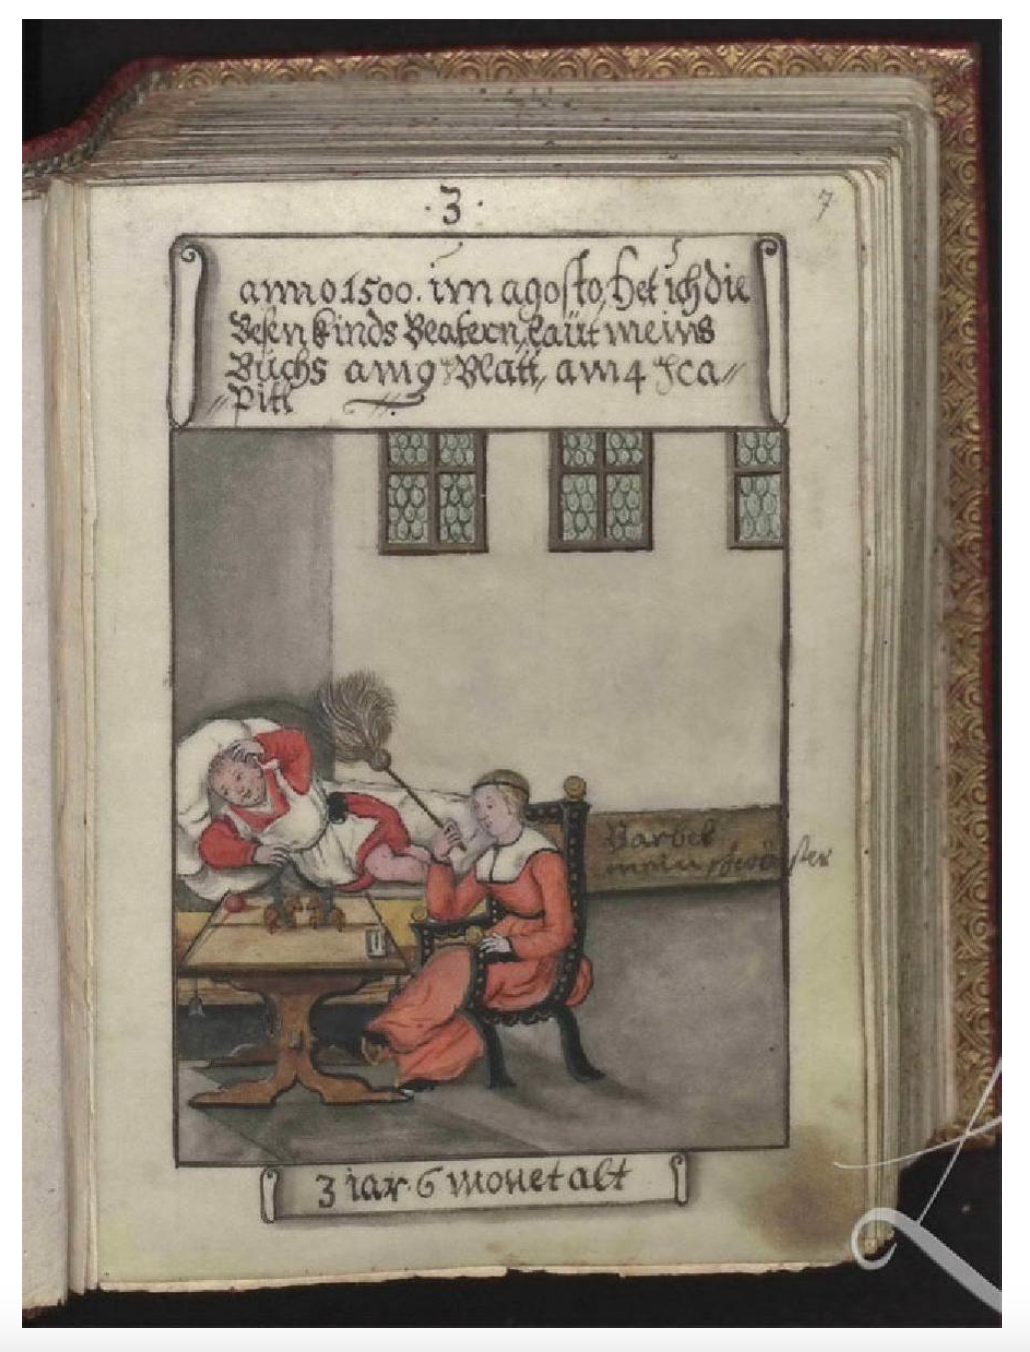 ·3·
7
anno 1500. im agosto, het ich die
Besen kinds Blatern, laüt meins
Büchs am 9 Blatt, am 4 Ca//
//pitl
Barbel
mein schwöster
3 iar 6 monet alt